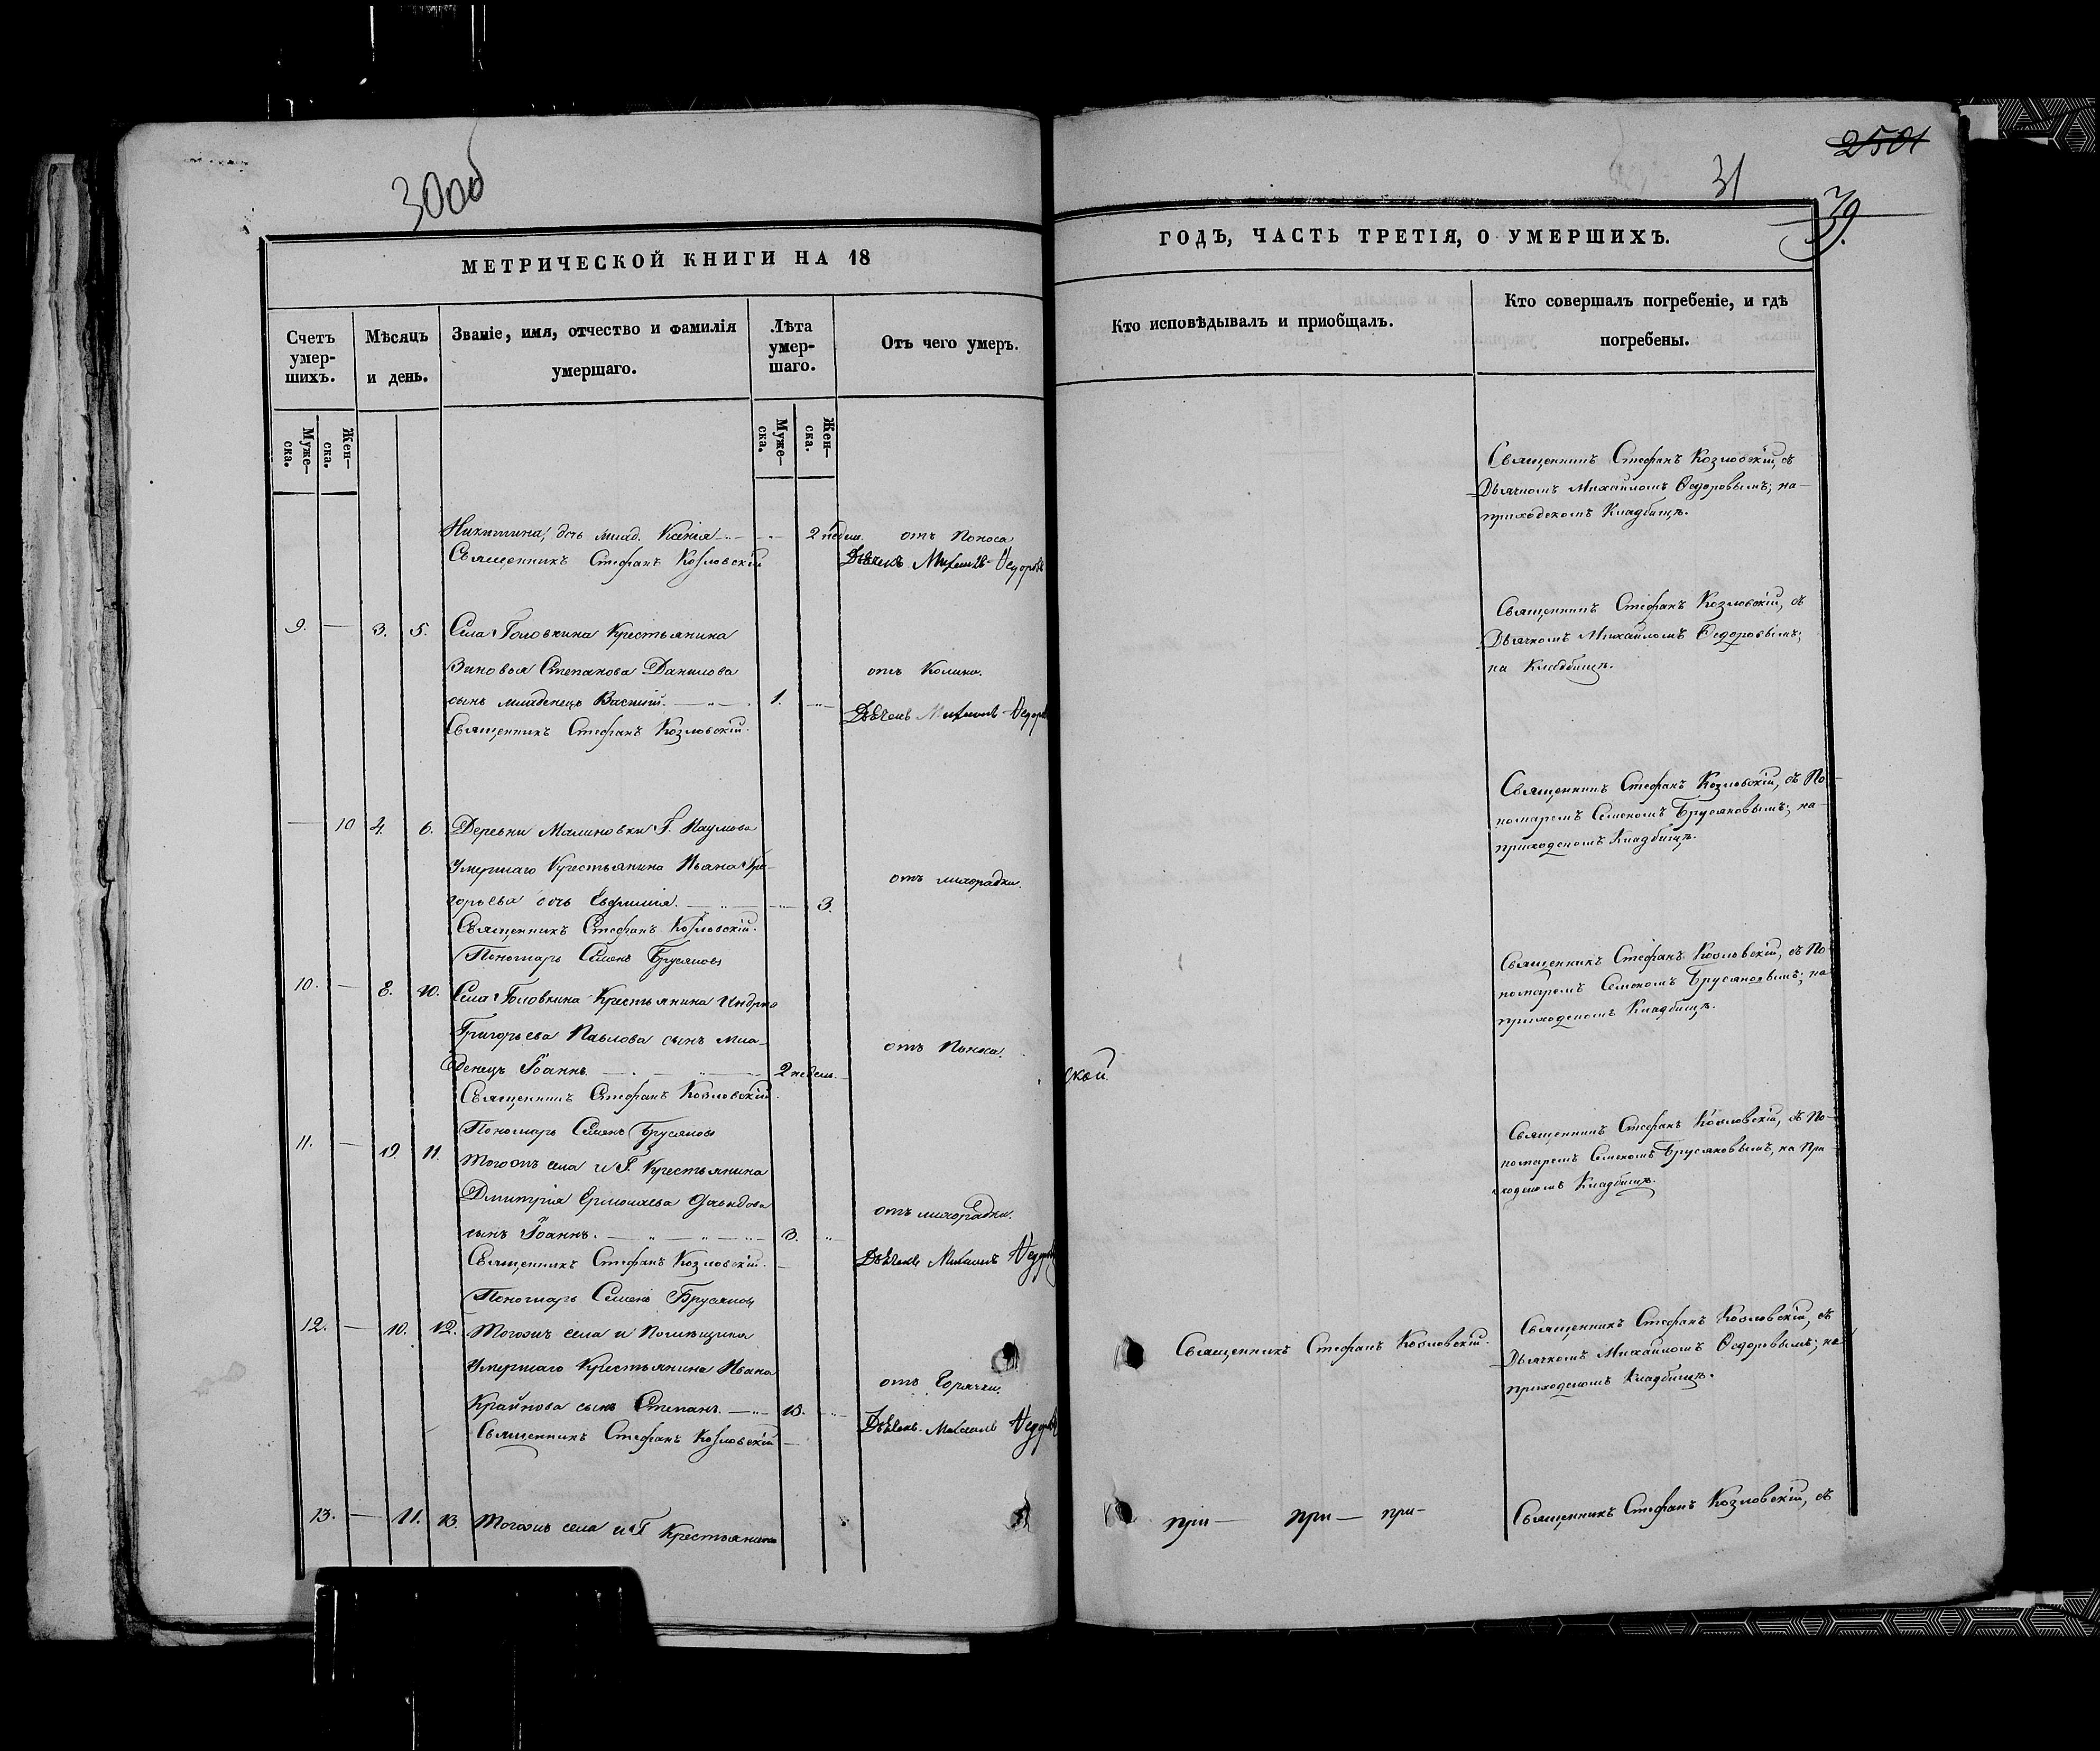 30об
МЕТРИЧЕСКОЙ КНИГИ НА 18
Счетъ умер-шихъ.
Мѣсяцъ и день.
Званіе, имя, отчество и фамилія умершаго.
Лѣта умер-шаго.
Отъ чего умеръ.
Муже-ска.
Жен-ска.
Муже-ска.
Жен-ска.
Никитина, дочь млад. Ксенія 2 недѣл. отъ Поноса
Священникъ Стефанъ Козловскій Дьячекъ Михаилъ Федоровъ
9. — 3. 5. Села Головкина Крестьянина
Зиновья Степанова Данилова отъ Колики.
сынъ младенецъ Василій. 1.
Священникъ Стефанъ Козловскій. Дьячекъ Михаилъ Федоровъ
— 10 4. 6. Деревни Малиновки Г. Наумова
Умершаго Крестьянина Ивана Гри-
горьева дочь Евфимія. 3. отъ лихорадки.
Священникъ Стефанъ Козловскій.
Пономарь Семенъ Брусяновъ
10. — 8. 10. Села Головкина Крестьянина Андрея
Григорьева Павлова сынъ мла- отъ Поноса.
денецъ Іоаннъ. 2 недѣл.
Священникъ Стефанъ Козловскій.
Пономарь Семенъ Брусяновъ
11. — 11. Тогожъ села и Г. Крестьянина
Дмитрія Ермолаева отъ лихорадки.
сынъ Іоаннъ. 3.
Священникъ Стефанъ Козловскій. Дьячекъ Михаилъ Федоровъ
Пономарь Семенъ Брусяновъ
12. — 10. 12. Тогожъ села и Помѣщика
Умершаго Крестьянина Ивана отъ Горячки.
Крайнова сынъ Степанъ 13.
Священникъ Стефанъ Козловскій Дьячекъ Михаилъ Федоровъ
13. — 11. 13. Тогожъ села и Г Крестьянина
2501
31
39.
ГОДЪ, ЧАСТЬ ТРЕТІЯ, О УМЕРШИХЪ.
Кто исповѣдывалъ и пріобщалъ.
Кто совершалъ погребеніе, и гдѣ погребены.
Священникъ Стефанъ Козловскій, съ
Дьячкомъ Михаиломъ Ѳедоровымъ; на
приходскомъ Кладбищѣ.
Священникъ Стефанъ Козловскій, съ
Дьячкомъ Михаиломъ Ѳедоровымъ;
на Кладбищѣ.
Священникъ Стефанъ Козловскій, съ По-
номаремъ Семеномъ Брусяновымъ; на
приходскомъ Кладбищѣ.
Священникъ Стефанъ Козловскій, съ По
номаремъ Семеномъ Брусяновымъ; на
приходскомъ Кладбищѣ.
ской.
Священникъ Стефанъ Козловскій, съ По-
номаремъ Семеномъ Брусяновымъ, на При
ходскомъ Кладбищѣ.
Священникъ Стефанъ Козловскій.
Священникъ Стефанъ Козловскій, съ
Дьячкомъ Михаиломъ Ѳедоровымъ; на
приходскомъ Кладбищѣ.
при — при — при —
Священникъ Стефанъ Козловскій, съ